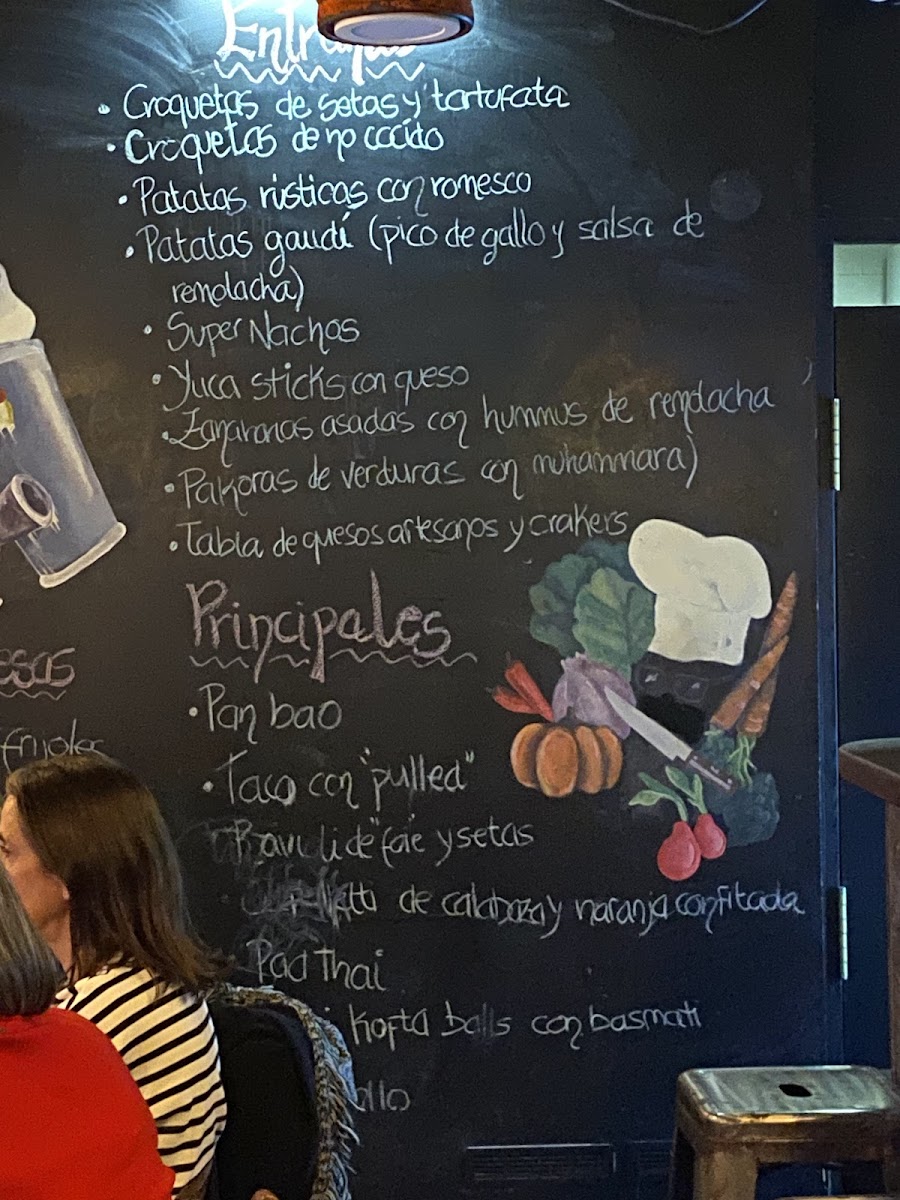 • Croquetas de setas y tartufata
• Croquetas de no cocido
• Patatas rústicas con romesco
• Patatas gaudí (pico de gallo y salsa de
remolacha)
• Super Nachos
• Yuca sticks con queso
• Zanahorias asadas con hummus de remolacha
• Pakoras de verduras con muhammara)
• Tabla de quesos artesanos y crakers
Principales
• Pan bao
• Taco con "pulled"
Ravuli de "foie" y setas
de calabaza y naranja confitada
Pad Thai
Kofta balls con basmati
esas
frijoles